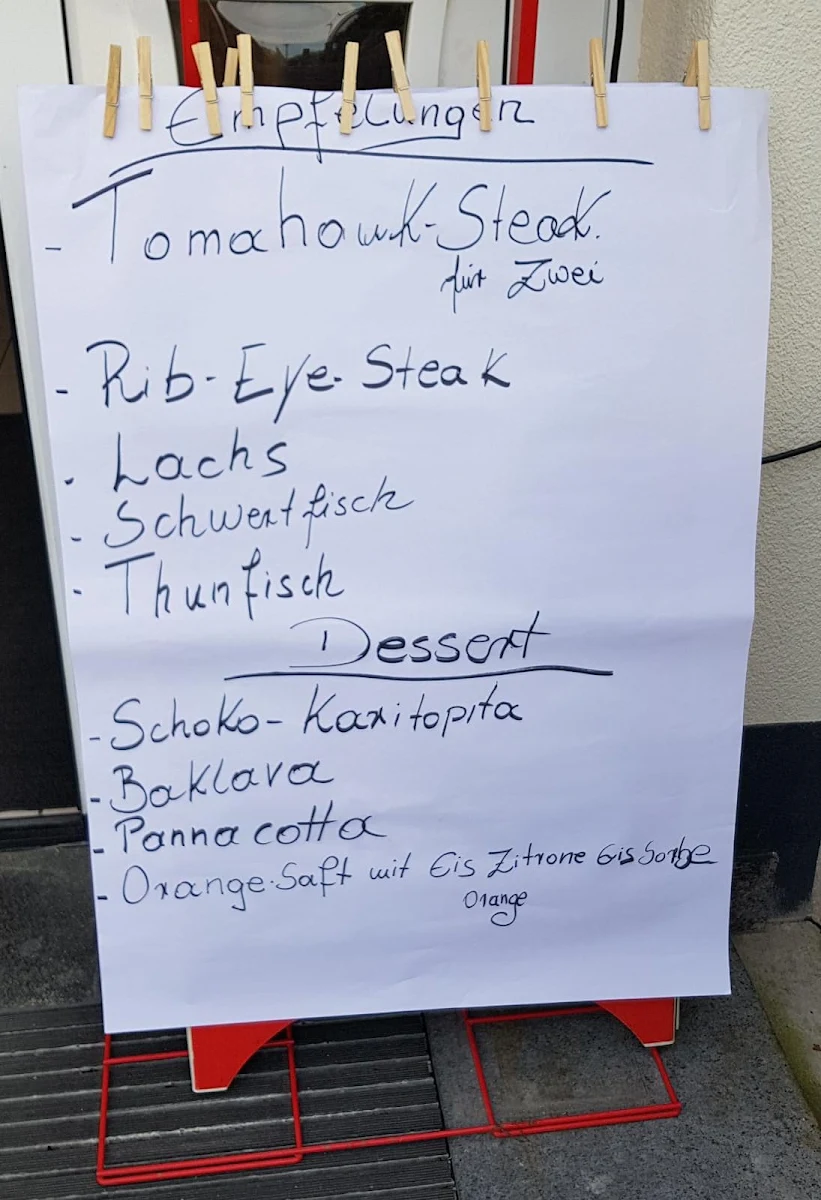 Empfelungen
- Tomahawk-Steak.
für Zwei
- Rib-Eye-Steak
- Lachs
- Schwertfisch
- Thunfisch
Dessert
- Schoko-Karitopita
- Baklava
- Panna cotta
- Orange-Saft mit Eis Zitrone Eis Sorbe
Orange